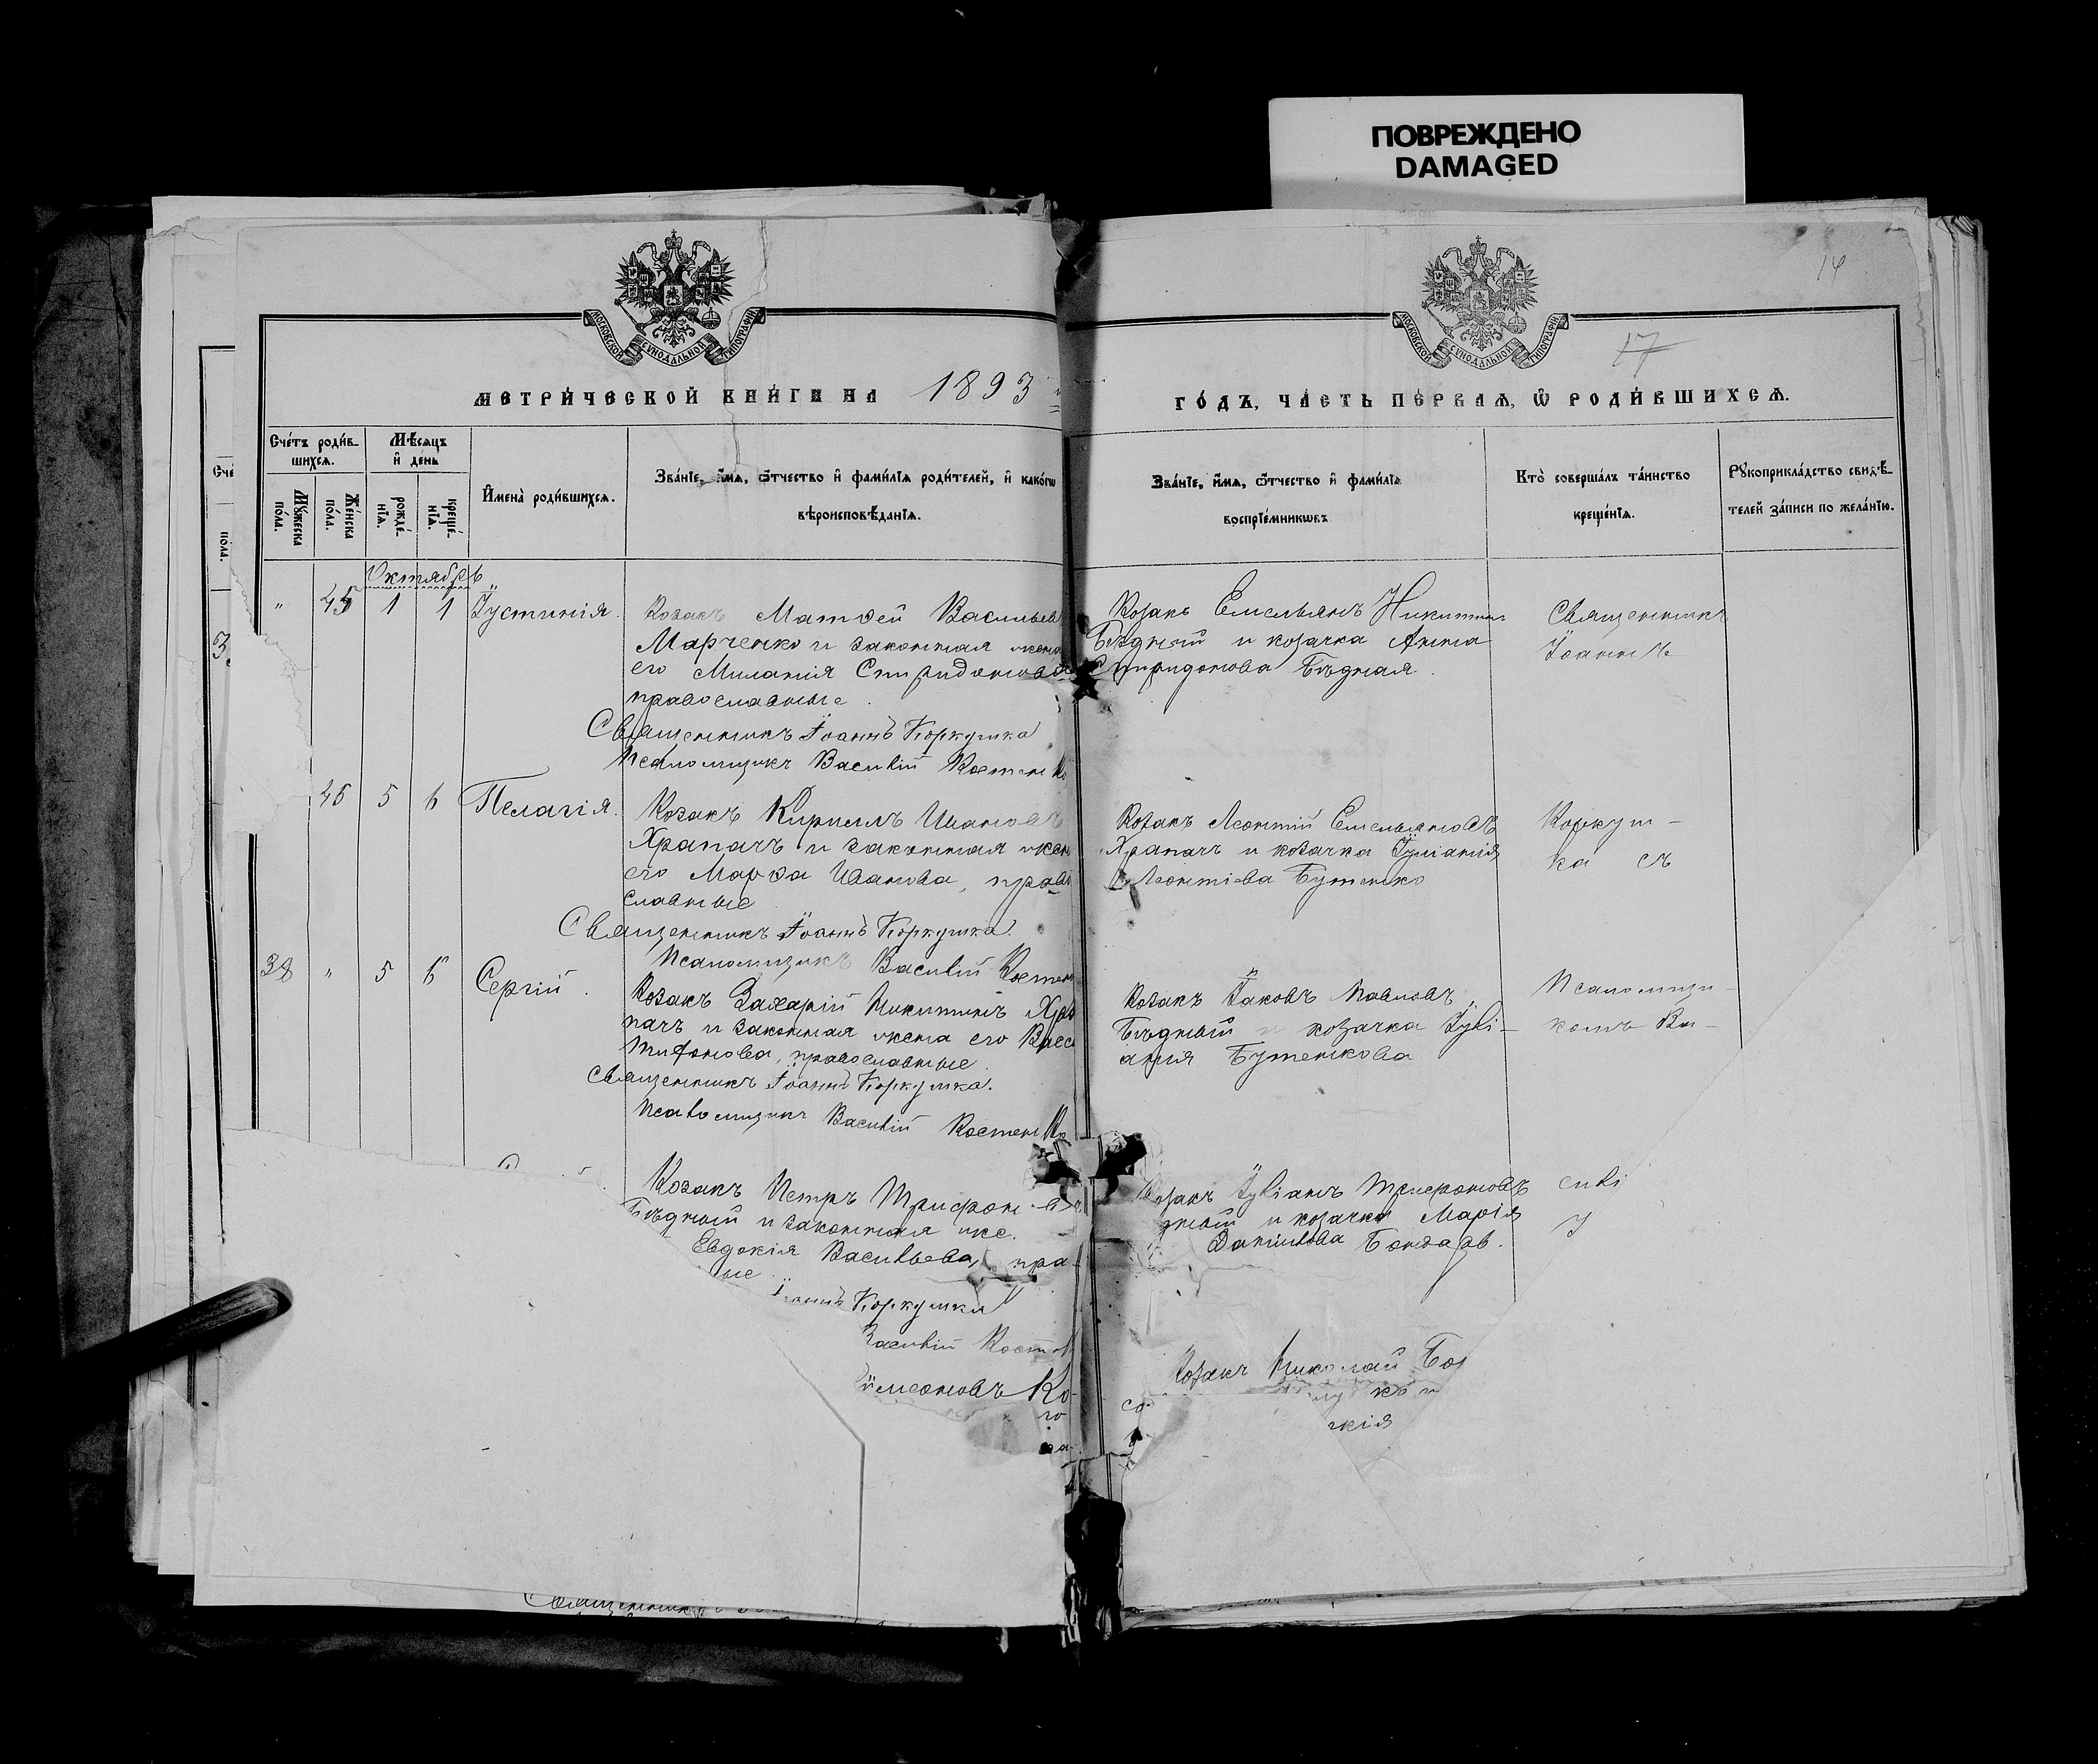 ПОВРЕЖДЕНО
DAMAGED
14
17
МОСКОВСКОЙ СѴНОДАЛЬНОЙ ТИПОГРАФІИ
МОСКОВСКОЙ СѴНОДАЛЬНОЙ ТИПОГРАФІИ
МЕТРИ́ЧЕСКОЙ КНИ́ГИ НА 1893
ГО́ДЪ, ЧА́СТЬ ПЕ́РВАѦ, Ѿ РОДИ́ВШИХСѦ.
Сче́тъ роди́в-
шихсѧ.
Мѣ́сяцъ
и҆ де́нь
Мꙋ́жеска
по́ла.
Же́нска
по́ла.
рожде́-
нїѧ.
креще́-
нїѧ.
И҆мена̀ роди́вшихсѧ.
Зва́нїе, и҆́мѧ, ѻ҆́тчество и҆ фами́лїѧ роди́телей, и҆ како́гѡ
вѣроисповѣ́данїѧ.
Зва́нїе, и҆́мѧ, ѻ҆́тчество и҆ фами́лїѧ
воспрїе́мникѡвъ
Кто̀ соверша́лъ та́инство
креще́нїѧ.
Рꙋкоприкла́дство свидѣ́-
телей за́писи по жела́нїю.
Октябрь
" 45 1 1 Іустинія.
Козакъ Матѳей Васильев
Марченко и законная жена
его Миланія Спиридонова
православные
Священникъ Іоаннъ Коркушка
Псаломщикъ Василій Костенко
Козакъ Емельянъ Никитин
Бѣдный и козачка Анна
Спиридонова Бѣдная.
Священникъ
Іоаннъ
46 5 6 Пелагія.
Козакъ Кириллъ Ивановъ
Храпачъ и законная жен
его Марѳа Иванова, право
славные
Священникъ Іоаннъ Коркушка.
Псаломщикъ Василій Костен
Козакъ Леонтій Емельяновъ
Храпачъ и козачка Іуліанія
Леонтіева Бутенко
Коркуш-
ка съ
38 " 5 6 Сергій.
Козакъ Захарій Никитинъ Хра
пачъ и законная жена его Васс
Тифонова, православные.
Священникъ Іоаннъ Коркушка.
Псаломщикъ Василій Костенко
Козакъ Іаковъ Павловъ
Бѣдный и козачка Іулі-
анія Бутенкова
Псаломщи-
комъ Ва-
Козакъ Петръ Трифоновъ
Бѣдный и законная же
Евдокія Васильева, пра-
ные
Іоаннъ Коркушка
Василій Костен
Симеоновъ Ко-
го
Козакъ Іуліанъ Трифоновъ
дный и козачка Марія
Даніилова Бондарь.
силі
Козакъ Николай Бо
кія
Священникъ